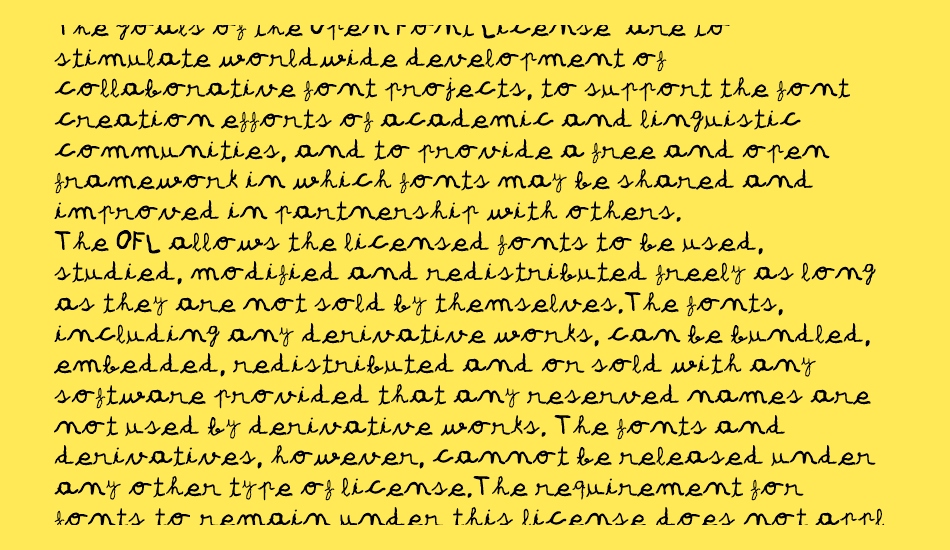 The goals of the Open Font License are to
stimulate worldwide development of
collaborative font projects, to support the font
creation efforts of academic and linguistic
communities, and to provide a free and open
framework in which fonts may be shared and
improved in partnership with others.
The OFL allows the licensed fonts to be used,
studied, modified and redistributed freely as long
as they are not sold by themselves.The fonts,
including any derivative works, can be bundled,
embedded, redistributed and or sold with any
software provided that any reserved names are
not used by derivative works. The fonts and
derivatives, however, cannot be released under
any other type of license.The requirement for
fonts to remain under this license does not appl